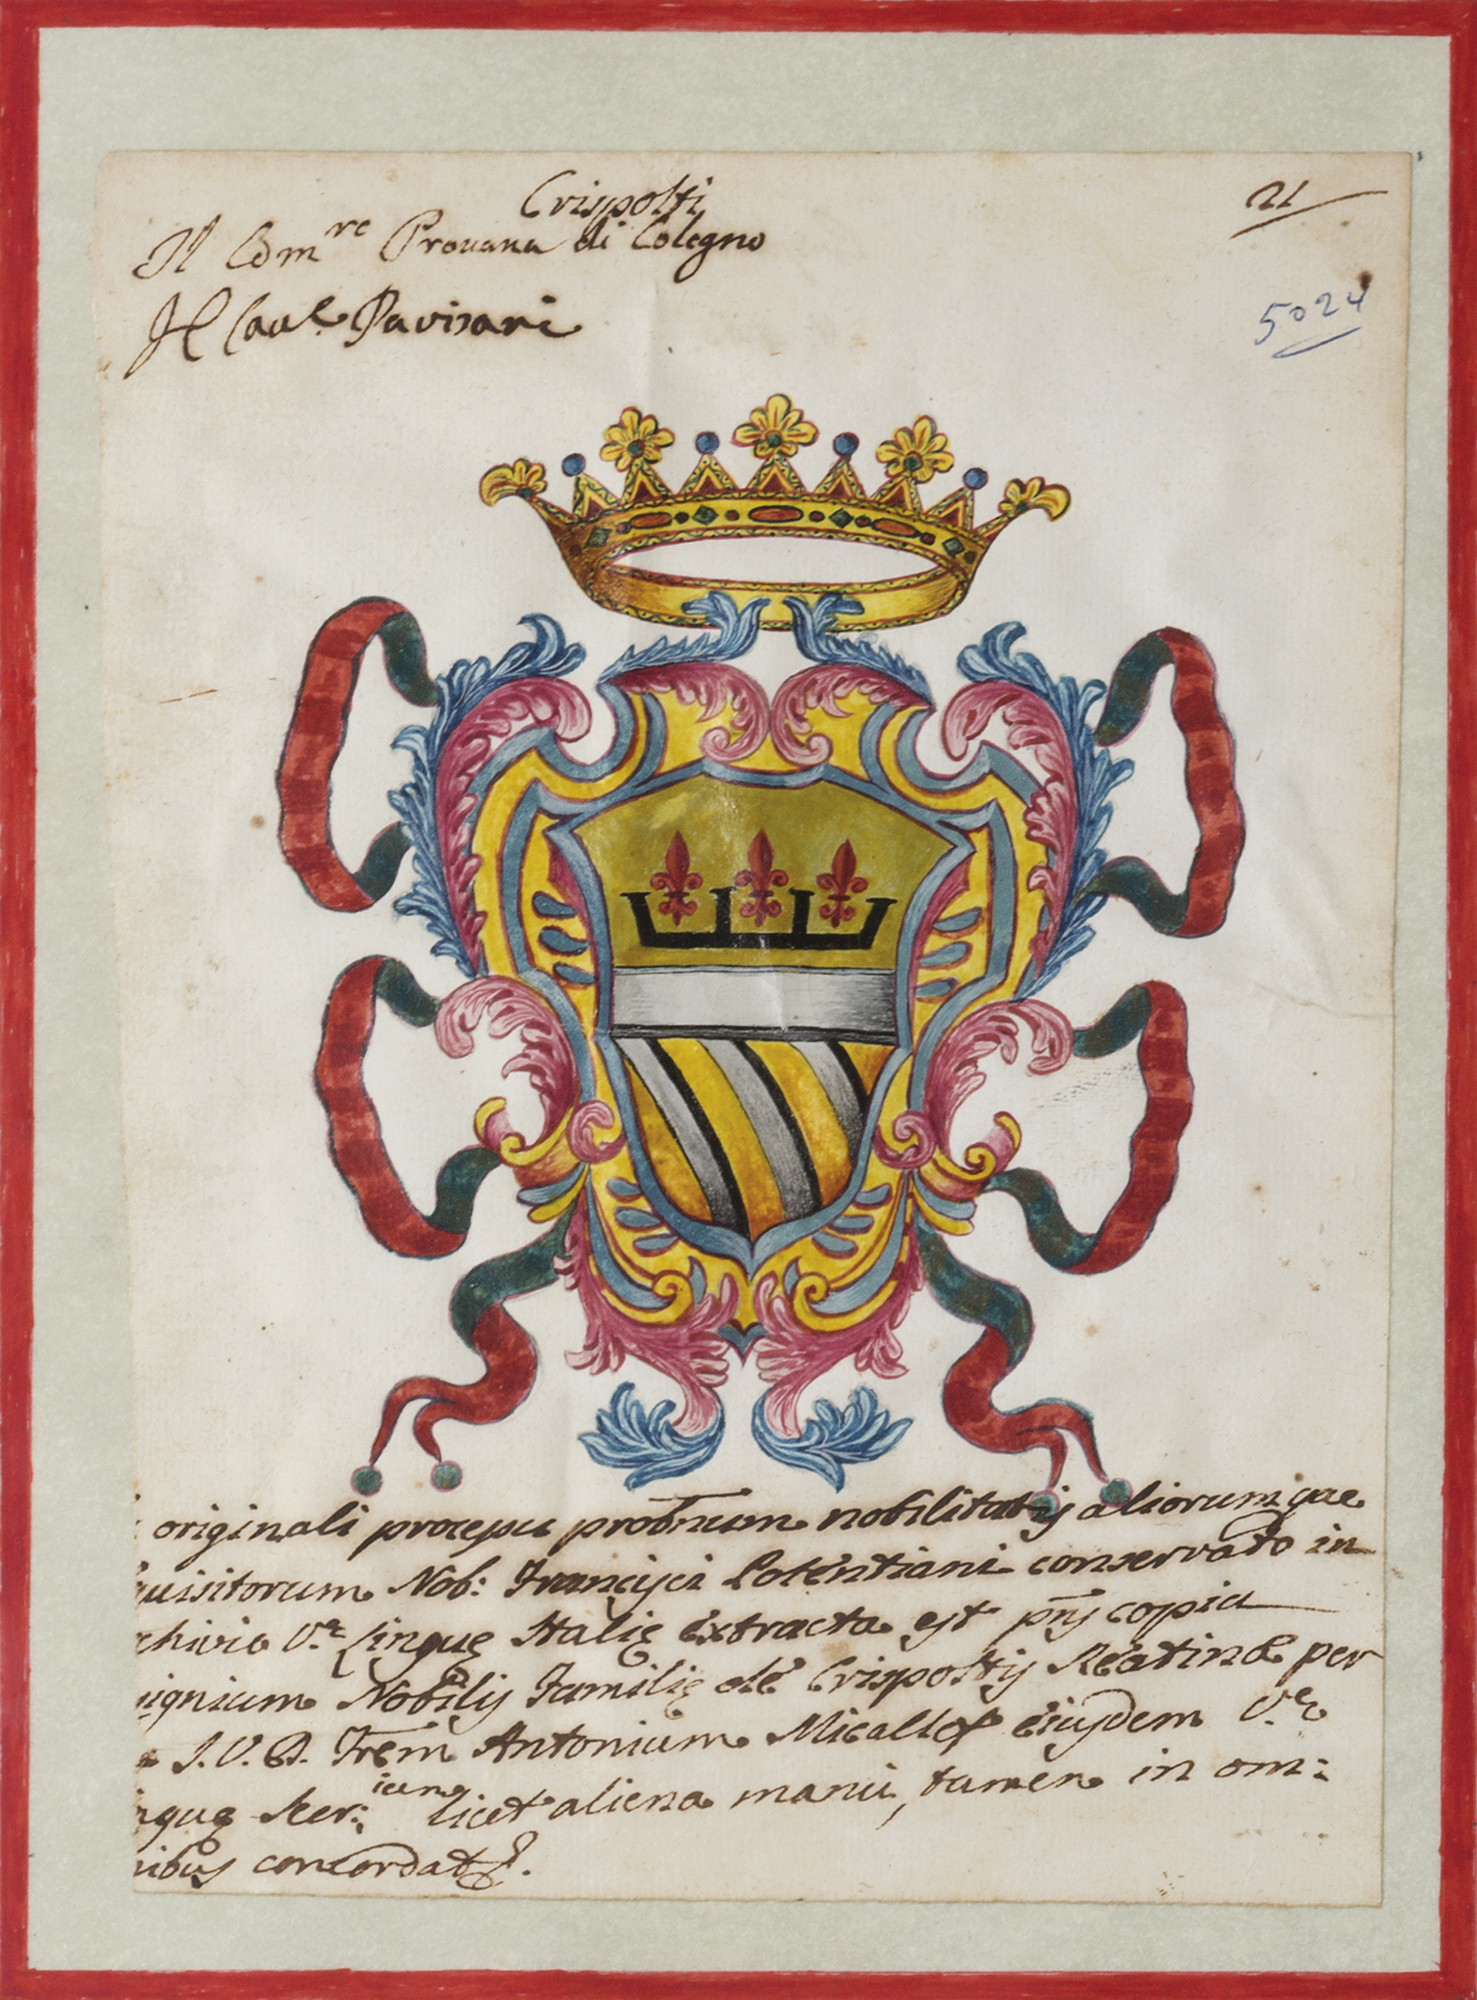 Crispolti
Il Com.re Provana di Colegno
Il Cav.e Pavisari
21
5024
originali processu probnum nobilitatis aliorumque
quisitorum Nob: Francisci Potentiani conservato in
chivio V.e Linguę Italię extracta est pns copia
signium Nobilis Familię de Crispoltis Reatinæ per
J.U.D. Frem Antonium Micallef eiusdem V.e
nguę Scr: ium licet aliena manu, tamen in om:
nibus concordat.